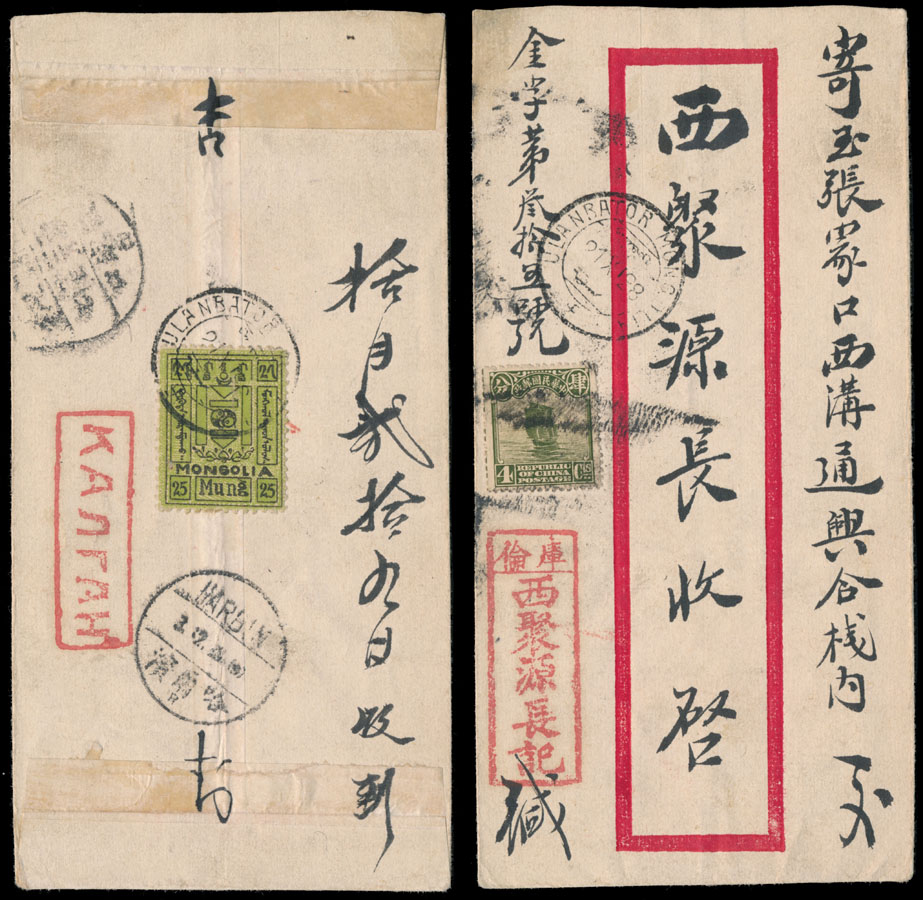 吉
拾月貳拾九日收到
ULANBATOR
MONGOLIA
25 Mung 25
КАЛГАН
HARBIN
封
寄至張家口西溝通興合栈內 交
西聚源長收啓
金字第叁拾五號
ULANBATOR
中華民國郵政
肆
分
4 Cs
REPUBLIC
OF CHINA
POSTAGE
庫倫
西聚源長記
緘